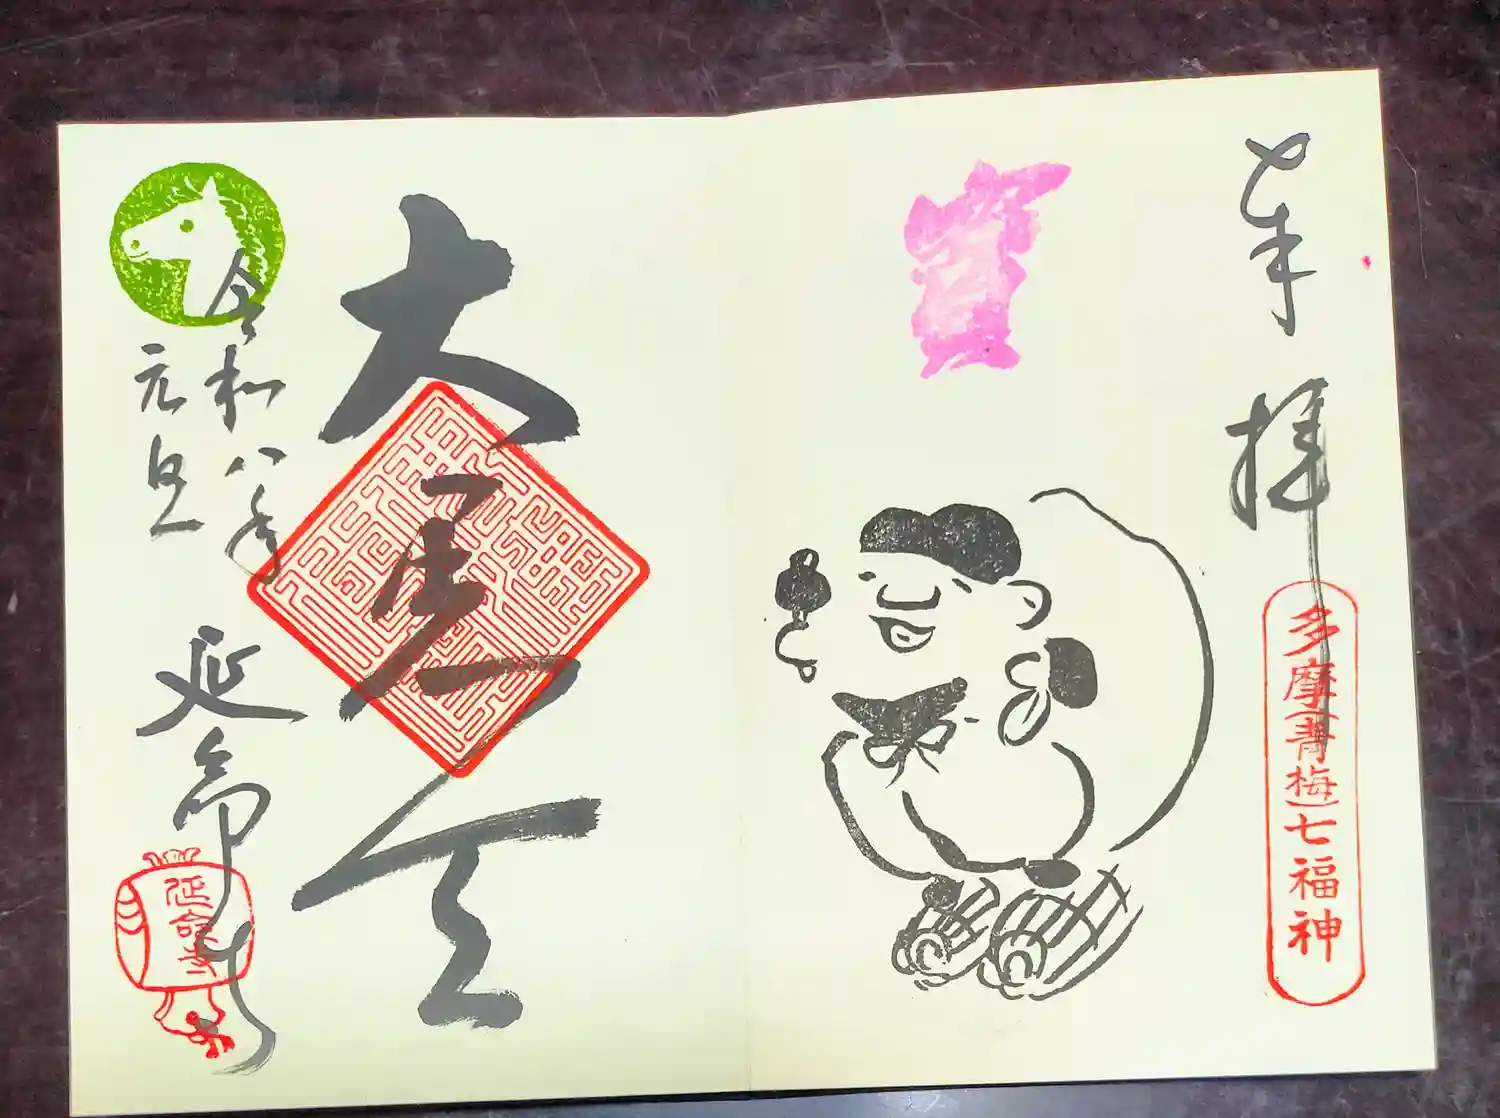 奉拝
多摩(青梅)七福神
大黒天
令和八年
元旦
延命寺
延命寺